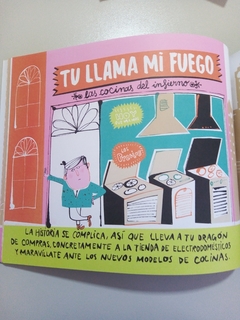 TU LLAMA MI FUEGO
las cocinas del infierno
LA HISTORIA SE COMPLICA, ASÍ QUE LLEVA A TU DRAGÓN
DE COMPRAS, CONCRETAMENTE A LA TIENDA DE ELECTRODOMÉSTICOS
Y MARAVÍLLATE ANTE LOS NUEVOS MODELOS DE COCINAS.